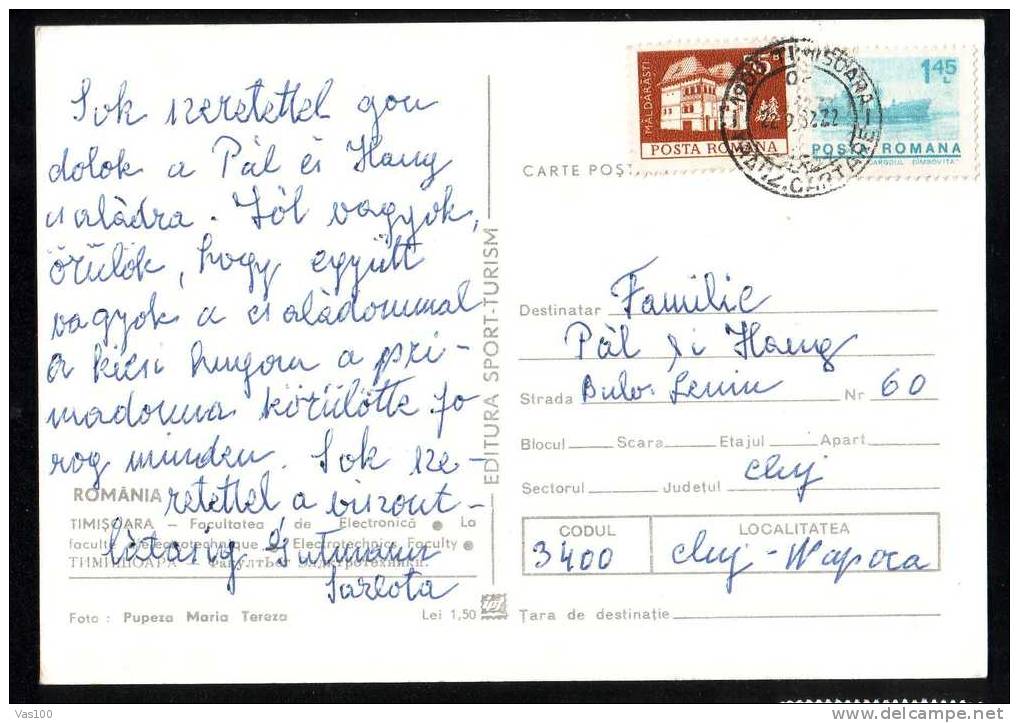 Sok szeretettel gon
dolok a Pál és Haug
családra. Jól vagyok,
örülök, hogy együtt
vagyok a családommal
a kicsi hugom a pri-
madonna körülötte fo
rog minden. Sok sze-
retettel a viszont-
látásig
Sarlota
ROMÂNIA
TIMIȘOARA – Facultatea de Electronică ● La
faculté Electrotechnique ● Electrotechnics Faculty ●
ТИМИШОАРА – Факультет Электротехники.
Foto : Pupeza Maria Tereza
Lei 1,50
EDITURA SPORT-TURISM
CARTE POȘT
MĂLDĂRĂȘTI
55 B
POSTA ROMANA
1900 TIMISOARA
CARTARE
1 45 L
POSTA ROMANA
CARGOUL DÎMBOVIȚA
Destinatar Familie
Pál și Haug
Strada Bulv. Lenin Nr 60
Blocul Scara Etajul Apart
Sectorul Județul Cluj
CODUL LOCALITATEA
3400 Cluj-Napoca
Țara de destinație
Vas100
delcampe.net